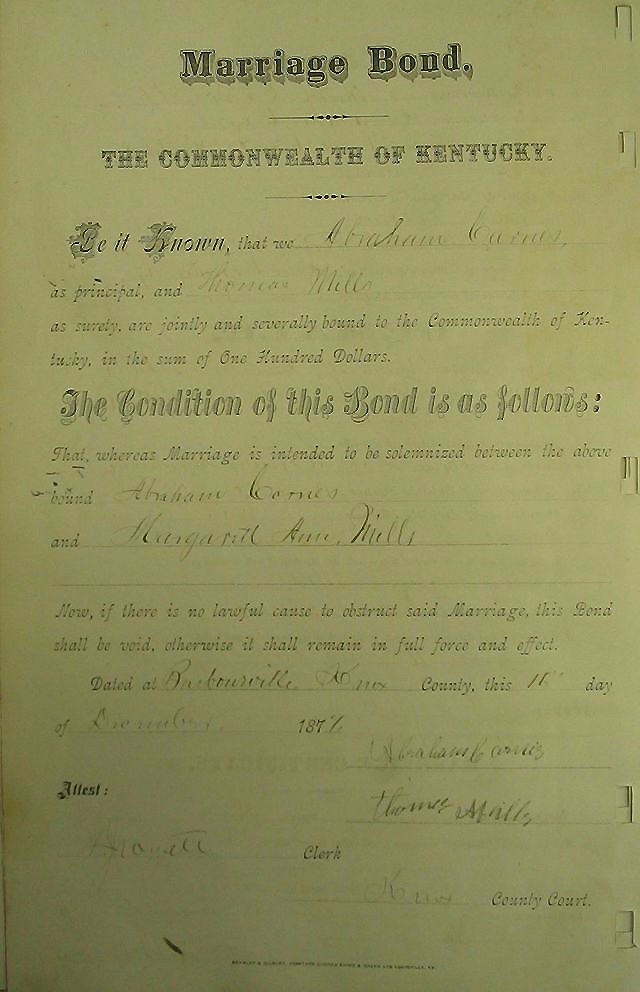 Marriage Bond.
THE COMMONWEALTH OF KENTUCKY.
Be it Known, that we Abraham Carnes,
as principal, and Thomas Mills
as surety, are jointly and severally bound to the Commonwealth of Ken-
tucky, in the sum of One Hundred Dollars.
The Condition of this Bond is as follows:
That, whereas Marriage is intended to be solemnized between the above
bound Abraham Carnes
and Margarett Ann Mills
Now, if there is no lawful cause to obstruct said Marriage, this Bond
shall be void, otherwise it shall remain in full force and effect.
Dated at Barbourville Knox County, this day
of December 187
Abraham Carnes
Thomas Mills
Attest:
Clerk
Knox County Court.